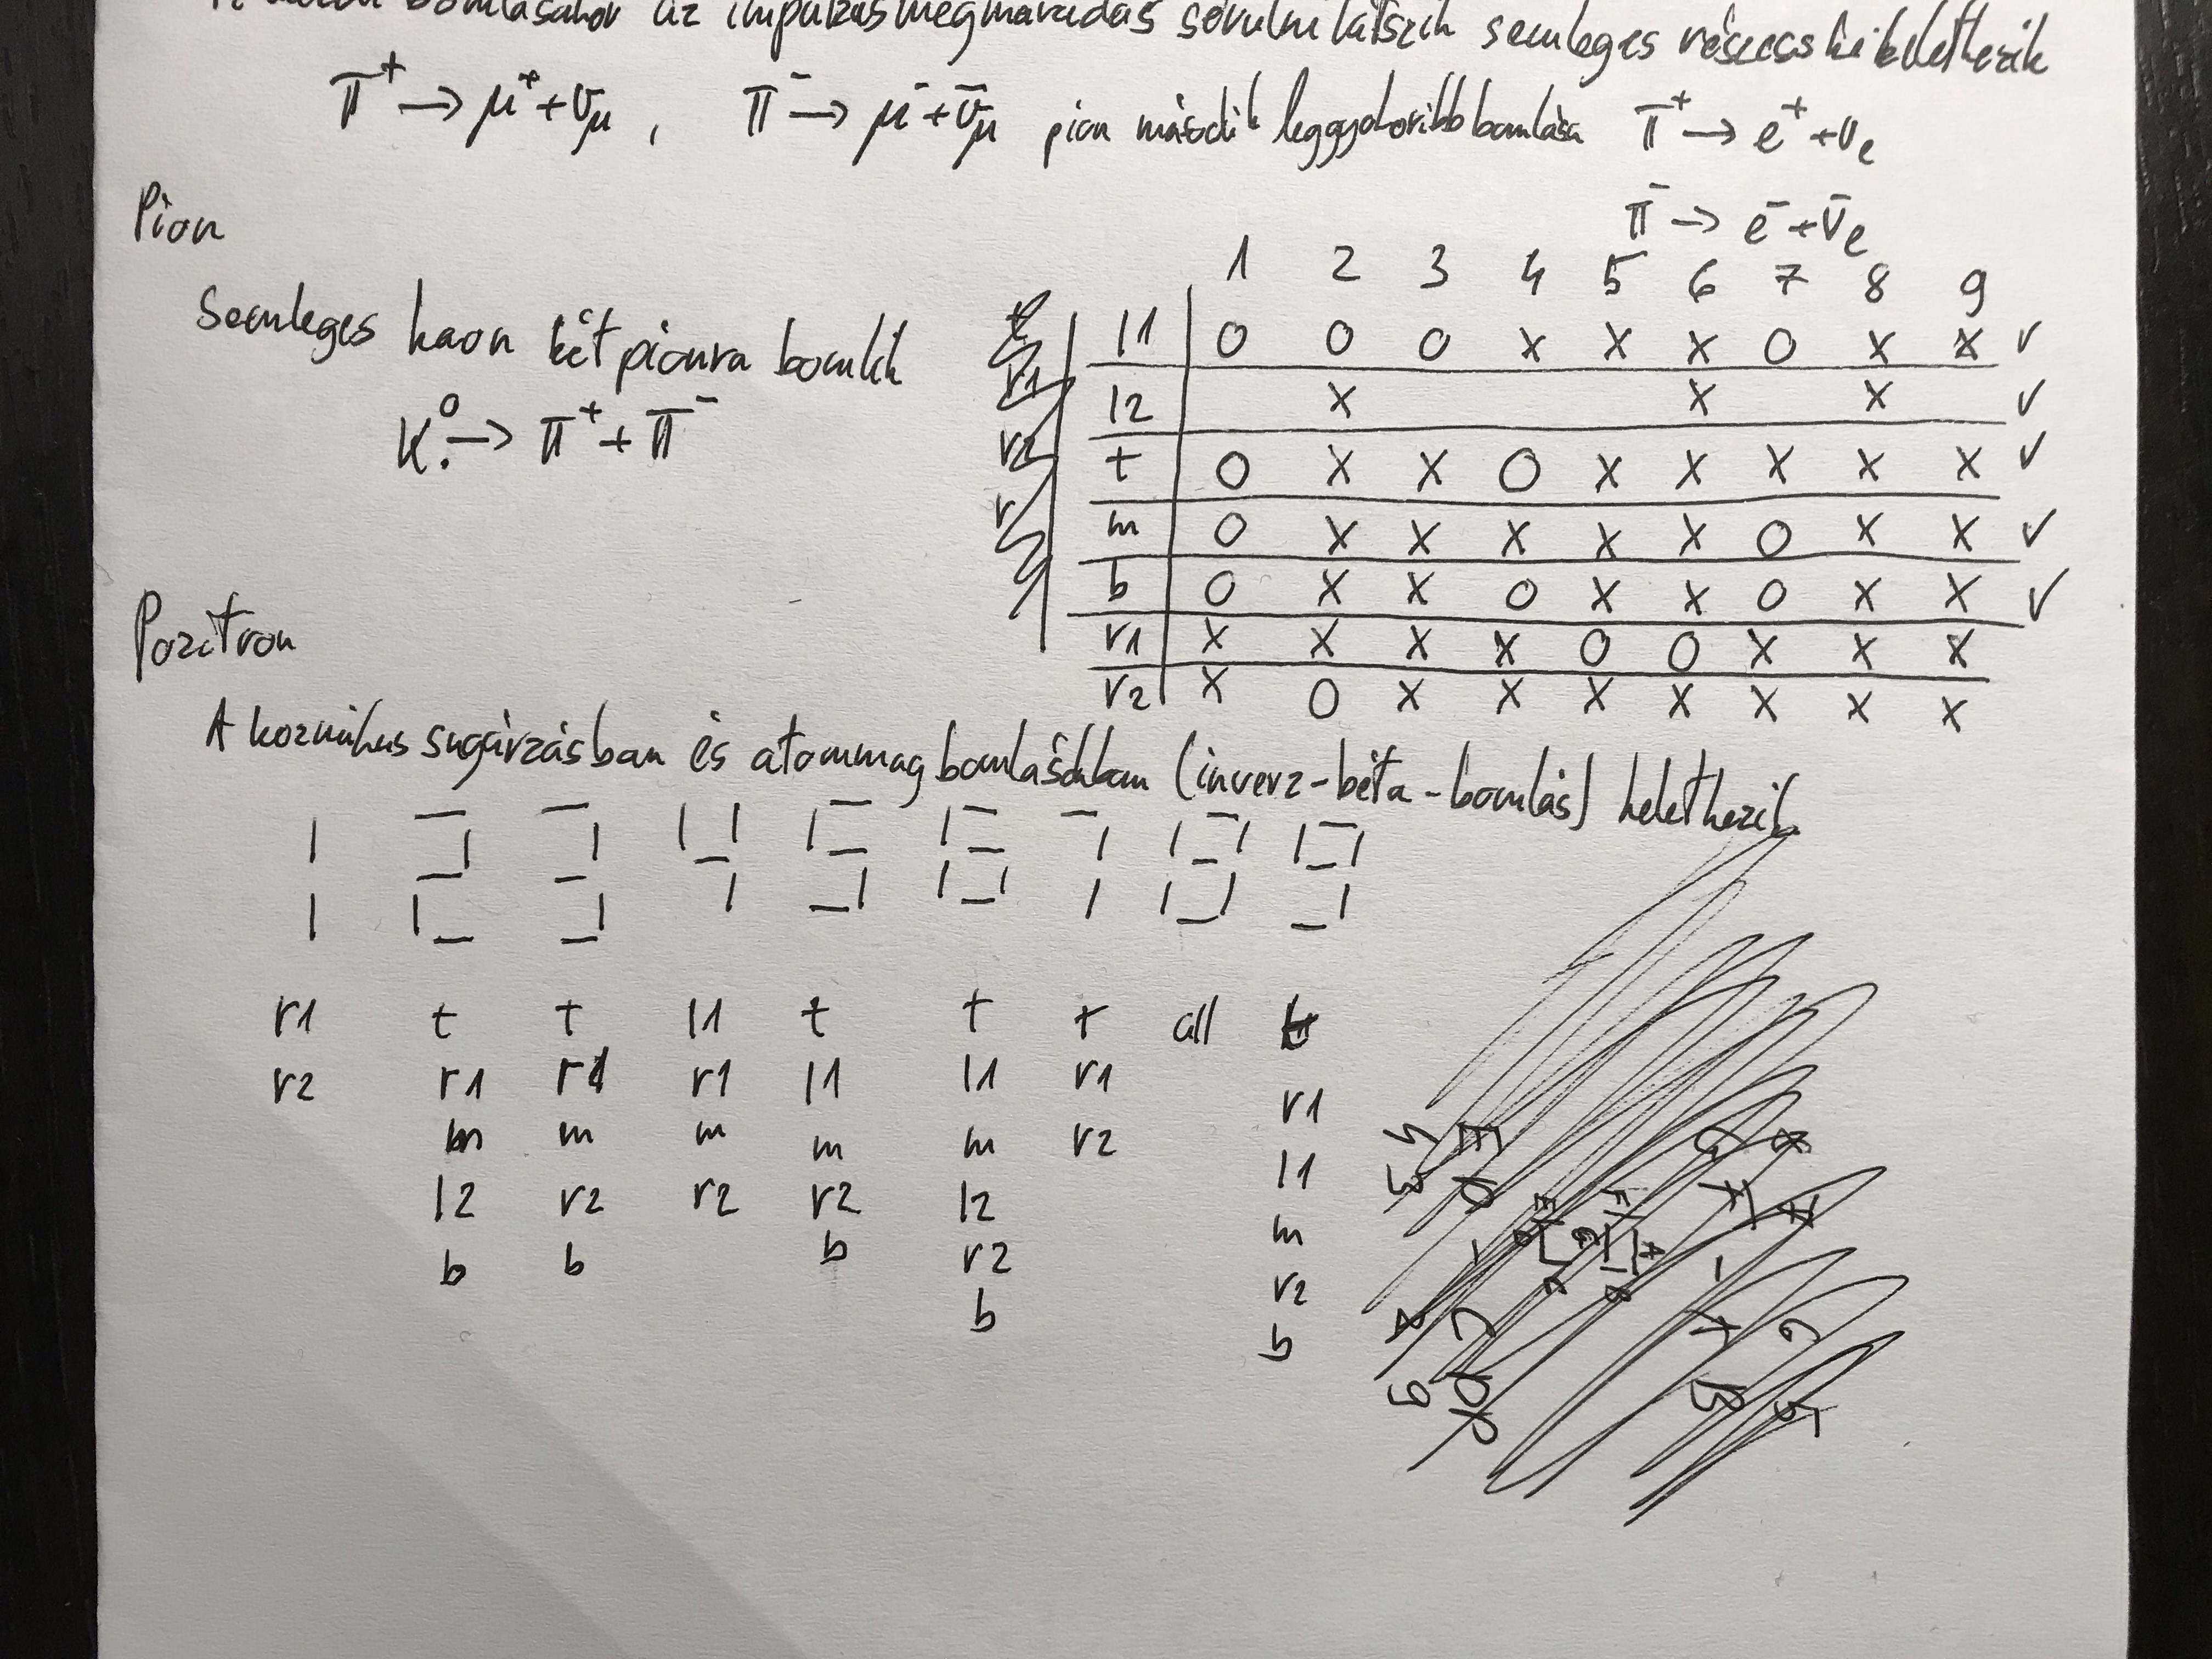 az impulzusmegmaradás sérülni látszik semleges részecske keletkezik
π⁺ → μ⁺ + ν̄μ , π⁻ → μ⁻ + ν̄μ pion második leggyakoribb bomlása π⁺ → e⁺ + νe
π⁻ → e⁻ + ν̄e
Pion
Semleges kaon két pionra bomlik
K⁰ → π⁺ + π⁻
1 2 3 4 5 6 7 8 9
l1 0 0 0 x x x 0 x x v
l2 x x x v
t 0 x x 0 x x x x x v
m 0 x x x x x 0 x x v
b 0 x x 0 x x 0 x x v
r1 x x x x 0 0 x x x
r2 x 0 x x x x x x x
Pozitron
A kozmikus sugárzásban és atommag bomlásokban (inverz-béta-bomlás) keletkezik
r1 t t l1 t t t all
r2 r1 r1 r1 l1 l1 r1 r1
m m m m m r2 l1
l2 r2 r2 r2 l2 m
b b b r2 r2
b b